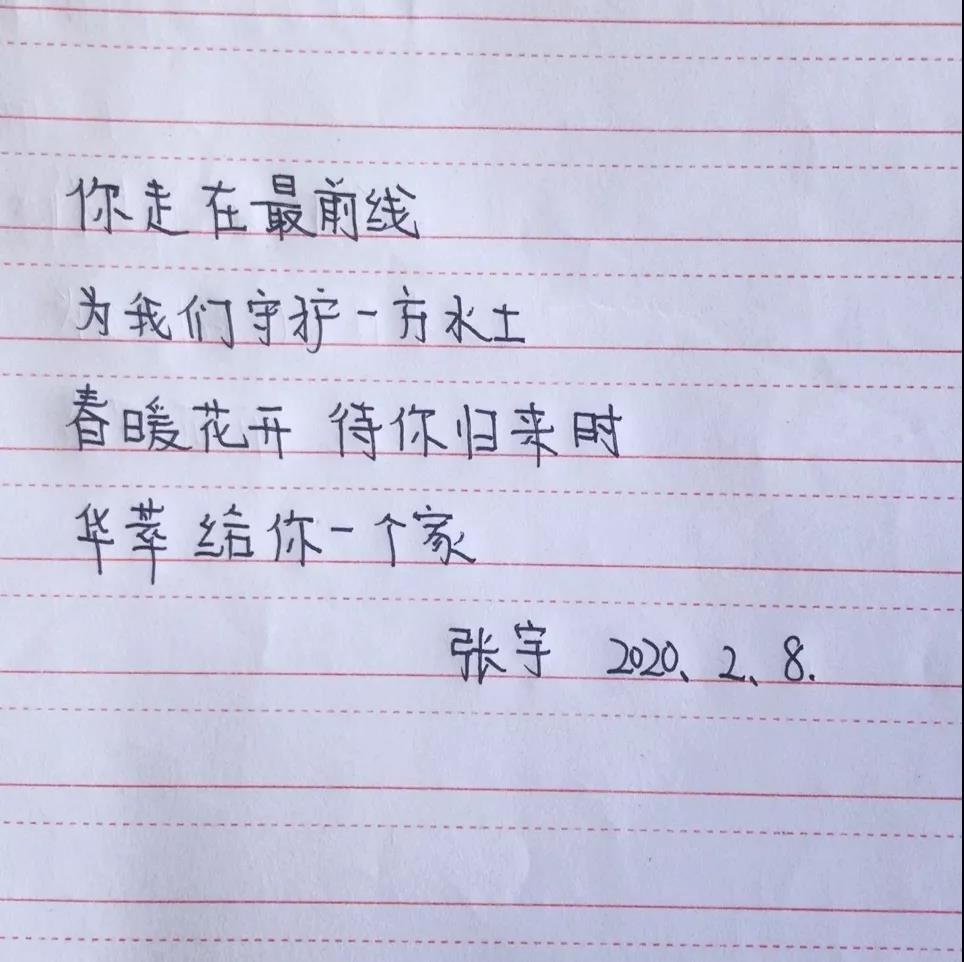 你走在最前线
为我们守护一方水土
春暖花开 待你归来时
华萃给你一个家
张宇 2020、2、8.